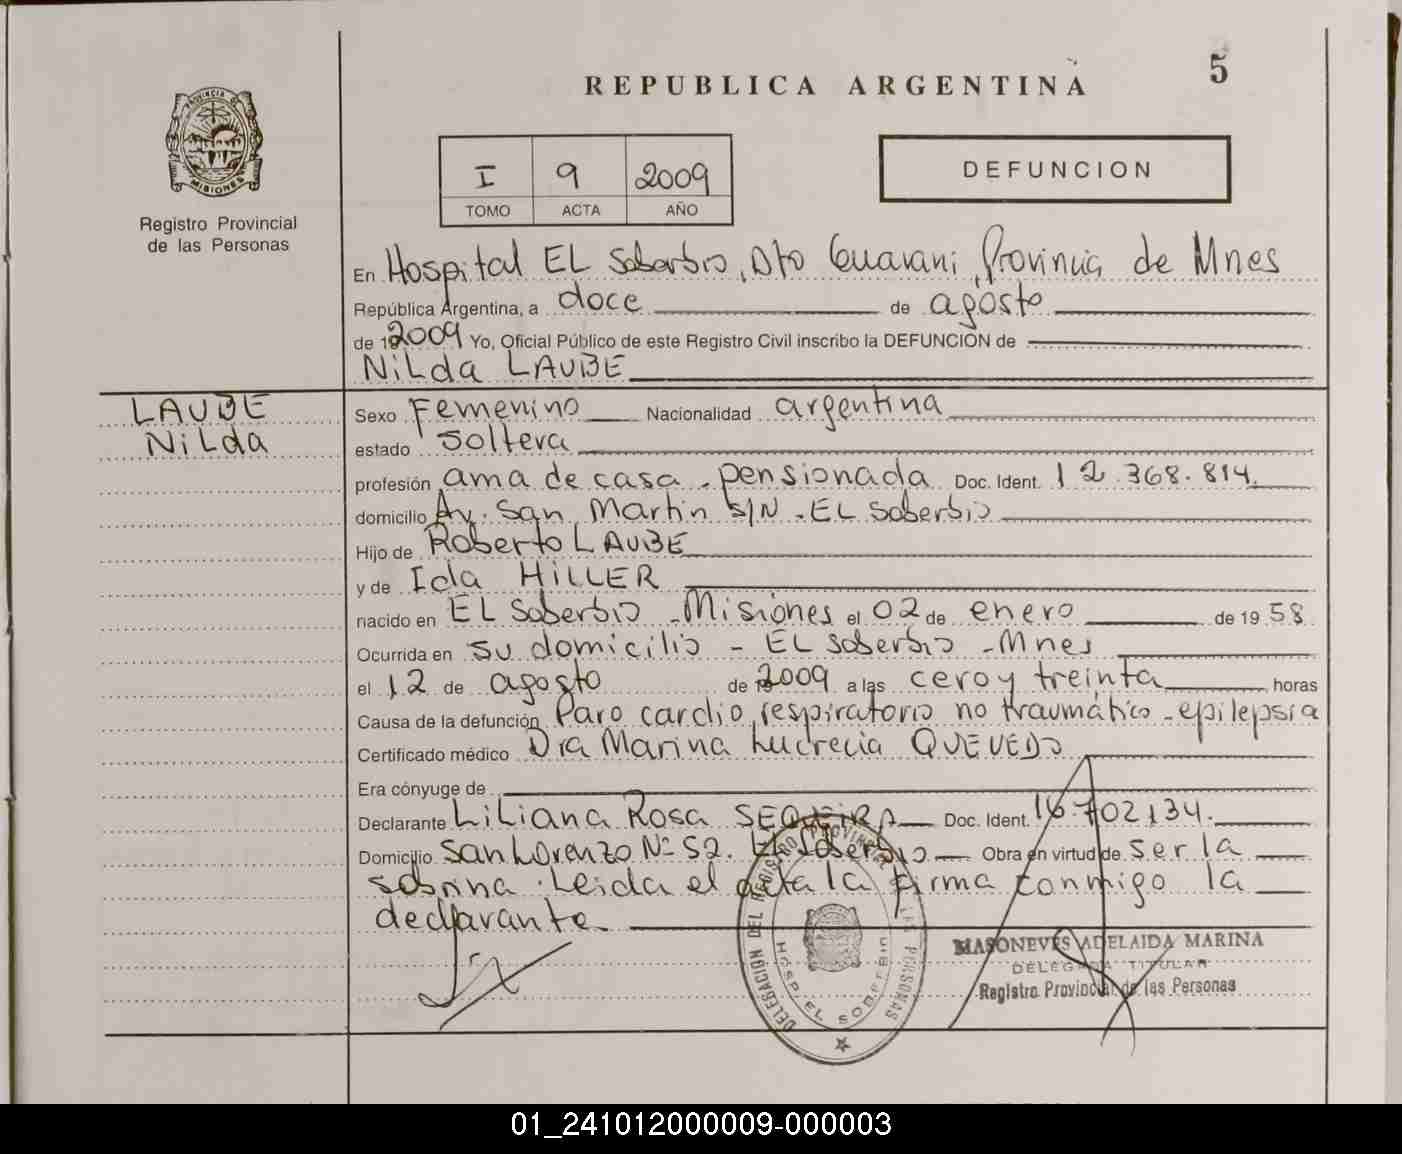 5
REPUBLICA ARGENTINA
PROVINCIA DE
MISIONES
Registro Provincial
de las Personas
I 9 2009
TOMO ACTA AÑO
DEFUNCION
En Hospital EL Soberbio, Dto Guarani, Provincia de Mnes
República Argentina, a doce de agosto
de 2009 Yo, Oficial Público de este Registro Civil inscribo la DEFUNCION de
Nilda LAUBE
LAUBE
Nilda
Sexo Femenino Nacionalidad argentina
estado Soltera
profesión ama de casa - pensionada Doc. Ident. 12.368.814.
domicilio Av. San Martin S/N - EL Soberbio
Hijo de Roberto LAUBE
y de Ida HILLER
nacido en EL Soberbio - Misiones el 02 de enero de 1958
Ocurrida en su domicilio - EL Soberbio - Mnes
el 12 de agosto de 2009 a las cero y treinta horas
Causa de la defunción Paro cardio respiratorio no traumático - epilepsia
Certificado médico Dra Marina Lucrecia QUEVEDO
Era cónyuge de
Declarante Liliana Rosa SEQUEIRA Doc. Ident. 16.702.134.
Domicilio San Lorenzo Nº 52. El Soberbio Obra en virtud de ser la
sobrina. Leida el acta la firma conmigo la
declarante.
DELEGACIÓN DEL REGISTRO PROVINCIAL DE LAS PERSONAS
HOSP. EL SOBERBIO
MASONEVES ADELAIDA MARINA
DELEGADA TITULAR
Registro Provincial de las Personas
01_241012000009-000003